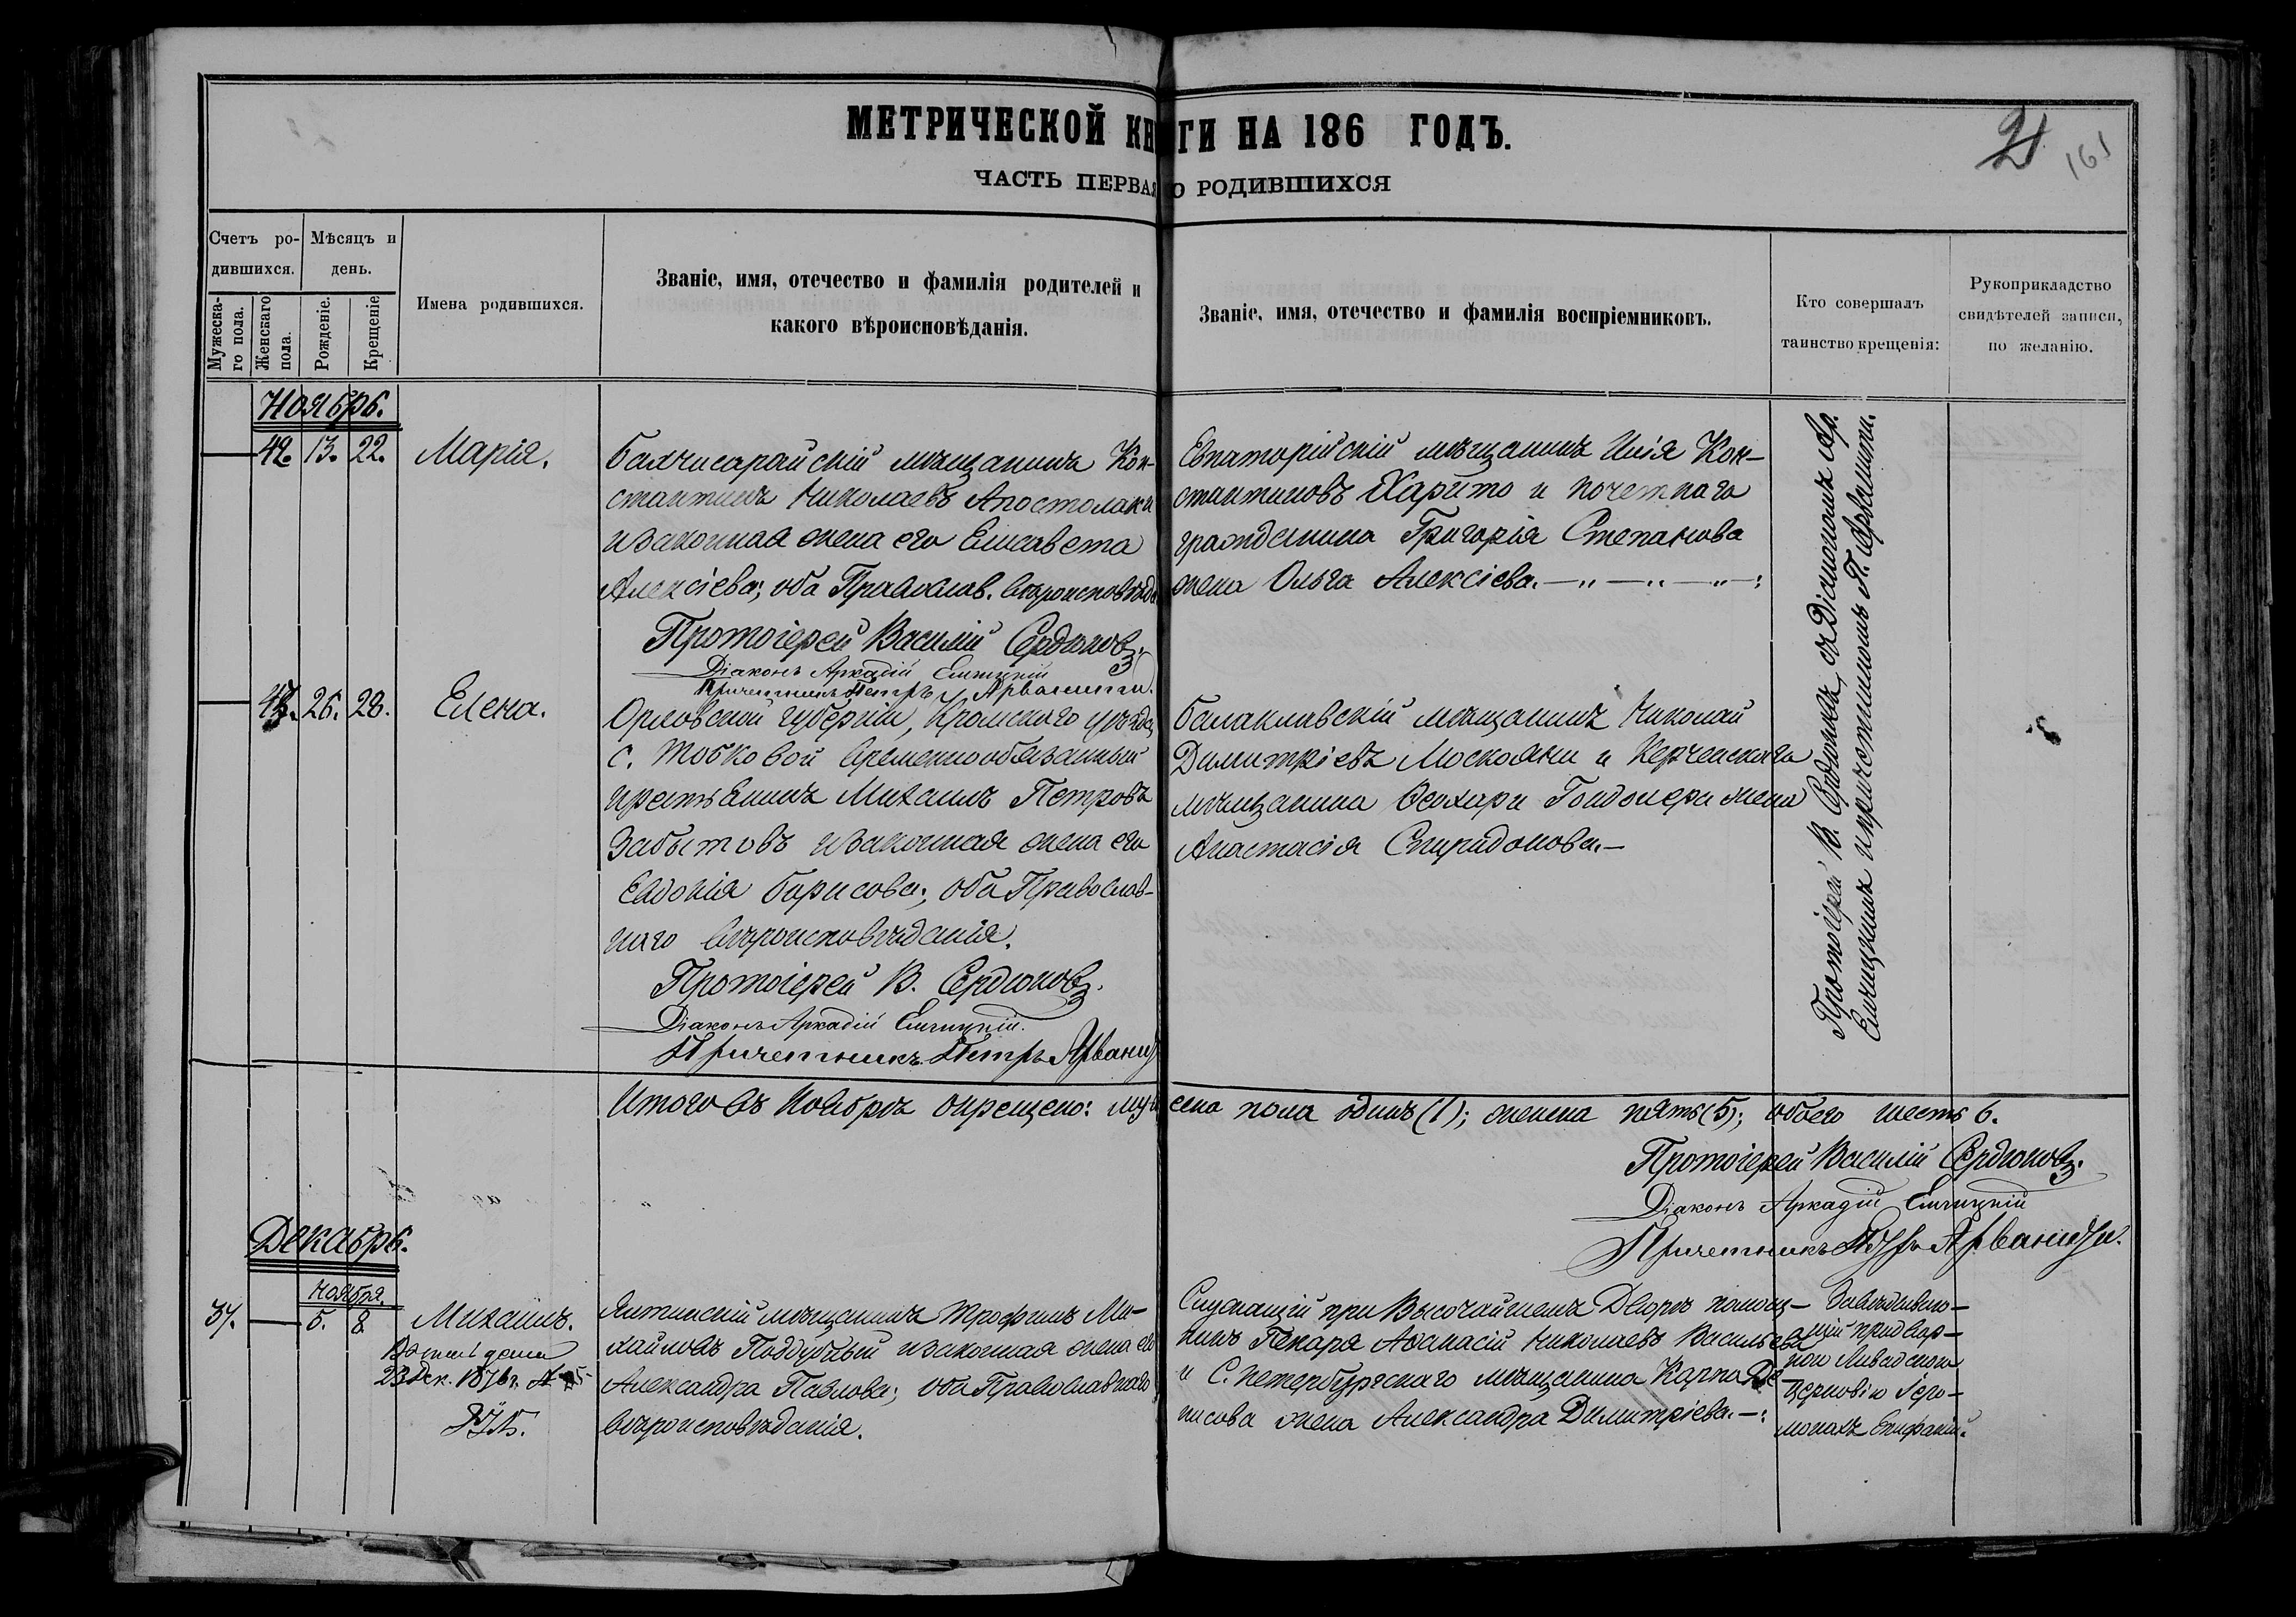 МЕТРИЧЕСКОЙ КНИГИ НА 186 ГОДЪ.
ЧАСТЬ ПЕРВАЯ О РОДИВШИХСЯ
21 161
Счетъ родившихся.
Мужескаго пола.
Женскаго пола.
Мѣсяцъ и день.
Рожденіе.
Крещеніе
Имена родившихся.
Званіе, имя, отечество и фамилія родителей и
какого вѣроисповѣданія.
Званіе, имя, отечество и фамилія воспріемниковъ.
Кто совершалъ
таинство крещенія:
Рукоприкладство
свидѣтелей записи,
по желанію.
Ноябрь.
42. 13. 22. Марія.
Бахчисарайскій мѣщанинъ Кон-
стантинъ Николаевъ Апостолаки
и законная жена его Елисавета
Алексіева; оба Православ. вѣроисповѣд
Протоіерей Василій Сердюковъ.
Діаконъ Аркадій Енчицкій
Причетникъ Петръ Арванити.
Евпаторійскій мѣщанинъ Илія Кон-
стантиновъ Харито и почетнаго
гражданина Григорія Степанова
жена Ольга Алексіева.
Протоіерей В. Сердюковъ, съ Діакономъ Ар.
Енчицкимъ и причетникомъ П. Арванити.
43. 26. 28. Елена.
Орловской губерніи, Кромскаго уѣзда,
с. временнообязанный
крестьянинъ Михаилъ Петровъ
Забытовъ и законная жена его
Евдокія Борисова; оба Православ-
наго вѣроисповѣданія.
Протоіерей В. Сердюковъ.
Діаконъ Аркадій Енчицкій.
Причетникъ Петръ Арванит
Балаклавскій мѣщанинъ Николай
Димитріевъ Москояни и Керченскаго
мѣщанина Ѳеохари жена
Анастасія Спиридонова.
Итого въ Ноябрѣ окрещено: мужеска пола одинъ (1); женска пять (5); обоего шесть 6.
Протоіерей Василій Сердюковъ.
Діаконъ Аркадій Енчицкій
Причетникъ Петръ Арваниди.
Декабрь.
Ноября.
37. 5. 8. Михаилъ.
дана
23 Дек. 1876 г. №
Ялтинскій мѣщанинъ Трофимъ Ми-
хайловъ Поддубный и законная жена его
Александра Павлова; оба Православнаго
вѣроисповѣданія.
Служащій при Высочайшемъ Дворѣ помощ-
никъ Пекаря Аѳанасій Николаевъ Васильевъ
и С. Петербургскаго мѣщанина Карпа Де-
нисова жена Александра Димитріева.
Завѣдываю-
щій придвор-
ною Ливадскою
церковію Іеро-
монахъ Епифаній.